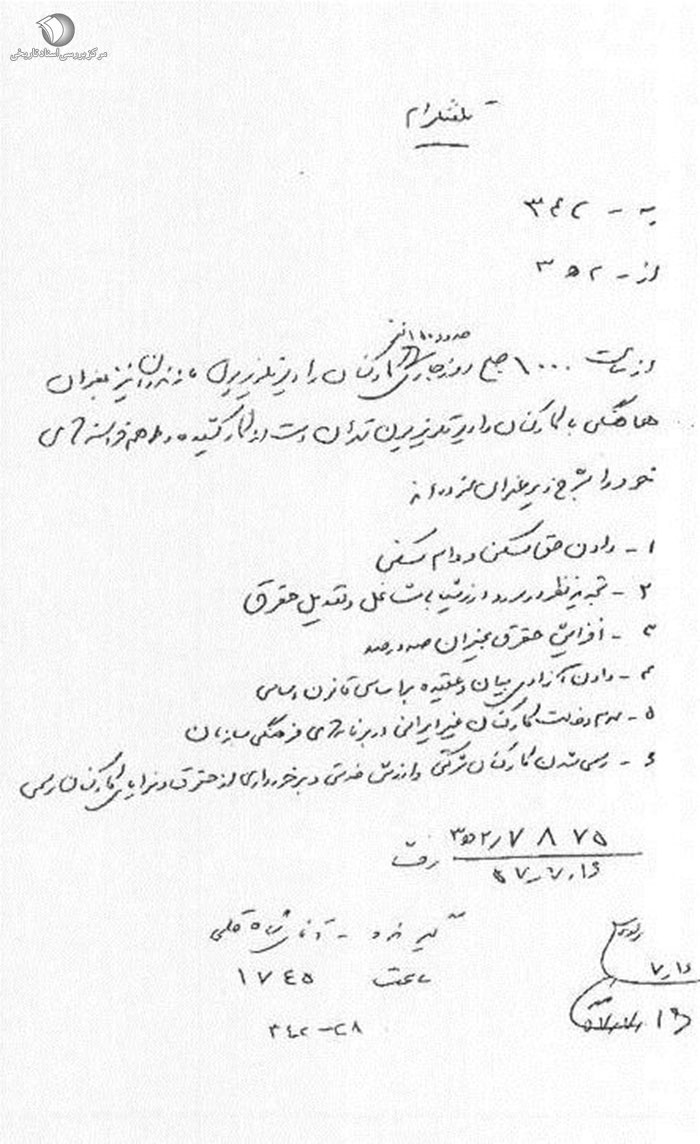 مرکز بررسی اسناد تاریخی
تلفنگرام
به - ۳۴۲
از - ۳۵۲
حدود ۱۸۰ نفر
از ساعت ۱۰۰۰ صبح روز جاری کارکنان رادیو تلویزیون مازندران نیز بعنوان
هماهنگی با کارکنان رادیو تلویزیون تهران دست از کار کشیده و اهم خواسته های
خود را بشرح زیر عنوان نموده اند
۱ - دادن حق مسکن و وام مسکن
۲ - تجدید نظر در مورد ارزشیابی مشاغل و تعدیل حقوق
۳ - افزایش حقوق بمیزان صد درصد
۴ - دادن آزادی بیان و عقیده بر اساس قانون اساسی
۵ - عدم دخالت کارکنان غیر ایرانی در برنامه های فرهنگی سازمان
۶ - رسمی شدن کارکنان شرکتی و ارزش خدمتی و برخورداری از حقوق و مزایای کارکنان رسمی
۳۵۲٫۷۸۷۵
۵۷٫۷٫۱۶
رفت
گیرنده - آقای شاه قلی
ساعت ۱۷۴۵
۳۴۲-۲۸
۷٫۱۶